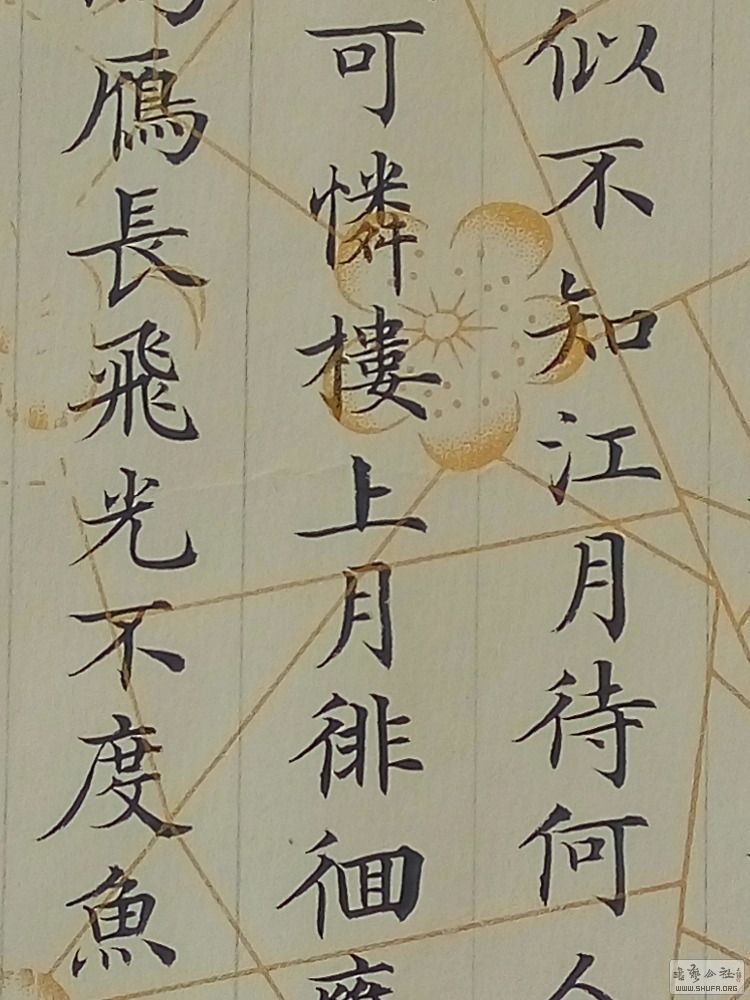 似不知江月待何人
可憐樓上月徘徊應
鴈長飛光不度魚
書藝公社
WWW.SHUFA.ORG